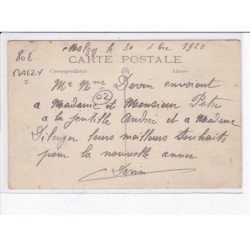 80€
MALZY
Malzy le 30 Xbre 1928
CARTE POSTALE
Correspondance Adresse
Mr Mme Devin envoient
02
a Madame et Monsieur Petr
a la gentille André et a Madame
leurs meilleurs souhaits
pour la nouvelle annee
Devin